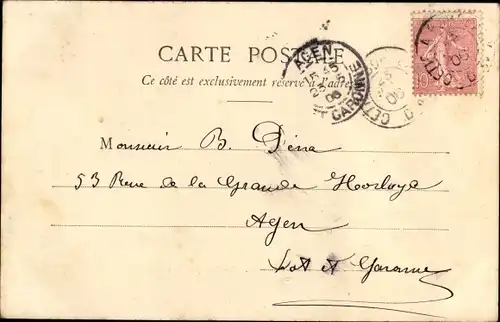 CARTE POSTALE
Ce côté est exclusivement réservé à l'adresse
AGEN
LOT ET GARONNE
CETTE
10
Monsieur B. Péna
53 Rue de la Grande Horloge
Agen
Lot et Garonne